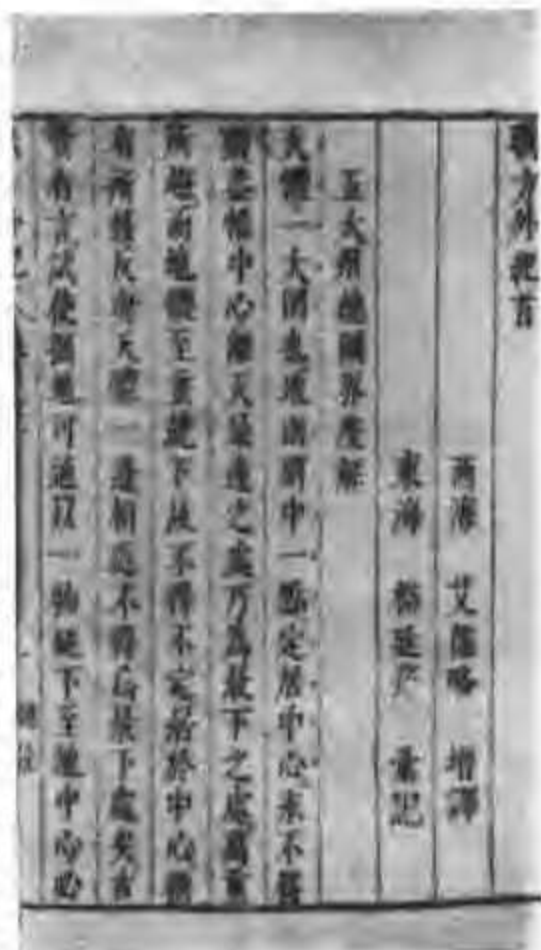 職方外紀首
西海 艾儒略 增譯
東海 楊廷筠 彙記
五大州總圖界度解
天體一大圜也地則圜中一點定居中心永不移
動蓋惟中心離天最遠之處乃為最下之處萬重
所趨而地體至重就下故不得不定居於中心稍
有所移反與天體一邊相近不得為最下處矣古
賢有言試使掘地可通以一物縋下至地中心必